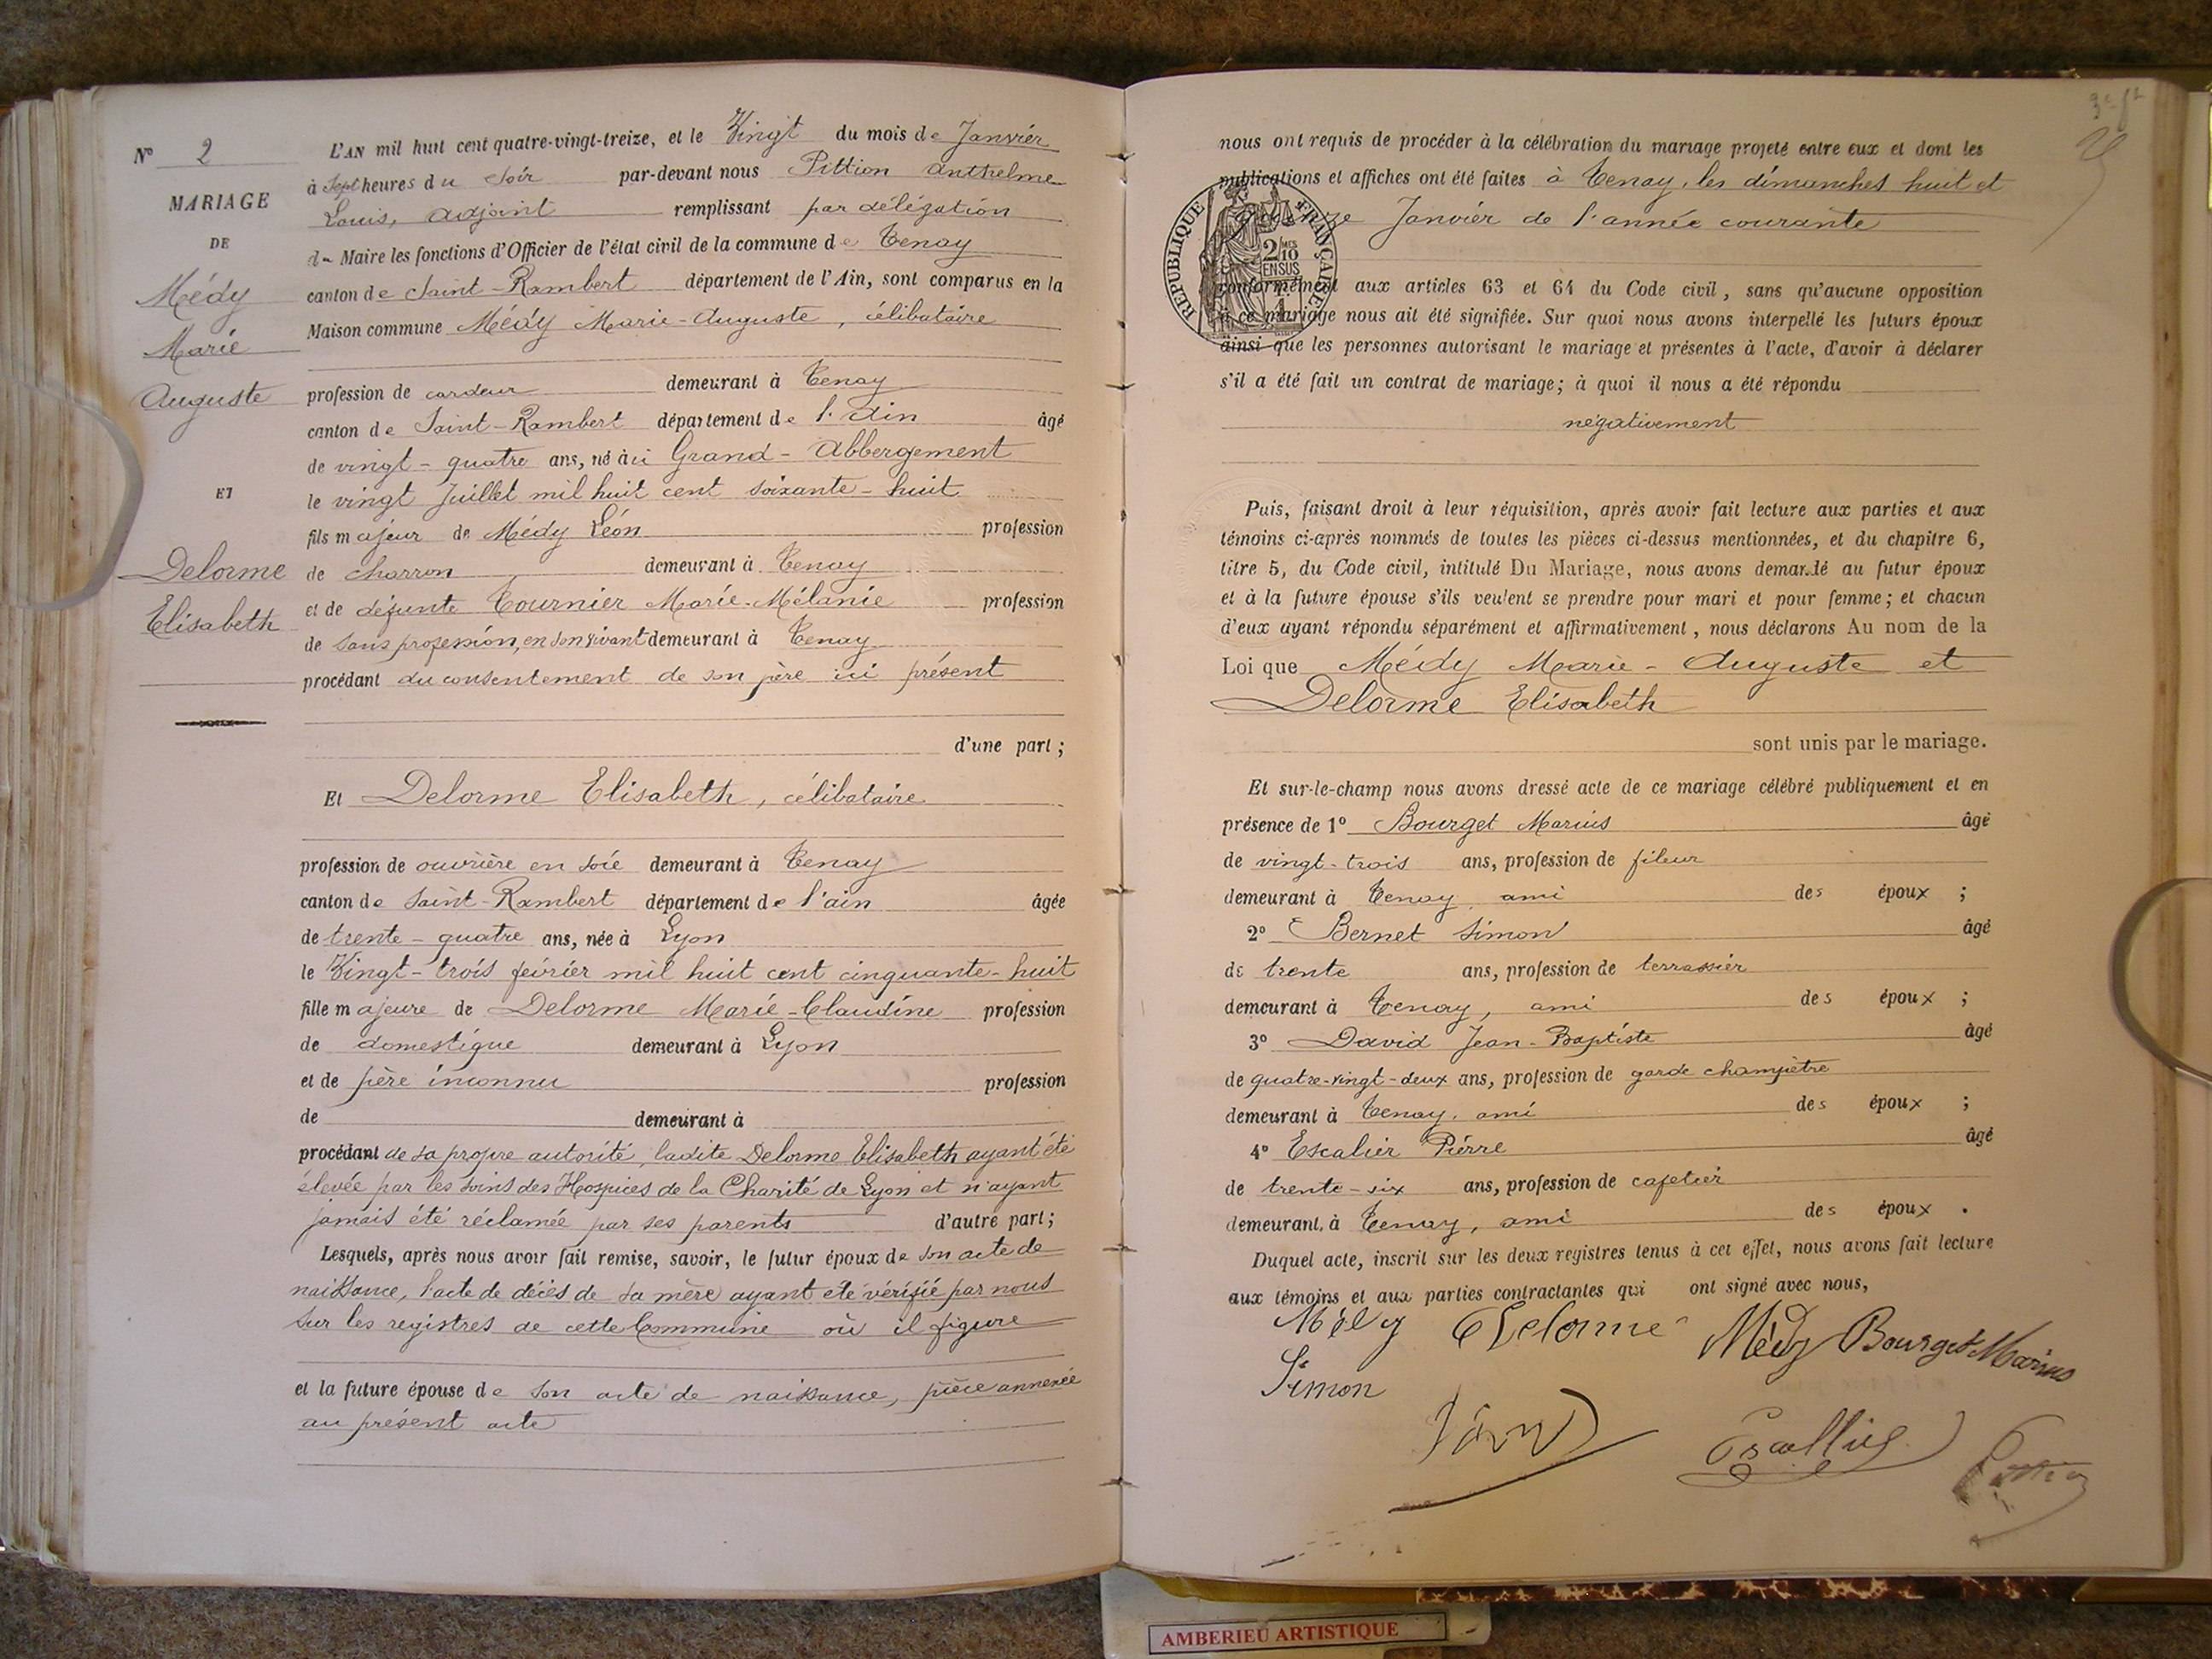 N° 2
MARIAGE
DE
Médy
Marie
Auguste
ET
Delorme
Elisabeth
L'AN mil huit cent quatre-vingt-treize, et le Vingt du mois de Janvier
à Sept heures du Soir par-devant nous Pittion Anthelme
Louis, adjoint remplissant par délégation
du Maire les fonctions d'Officier de l'état civil de la commune de Tenay
canton de Saint-Rambert département de l'Ain, sont comparus en la
Maison commune Médy Marie-Auguste, célibataire
profession de cardeur demeurant à Tenay
canton de Saint-Rambert département de l'Ain âgé
de vingt-quatre ans, né au Grand-Abbergement
le vingt Juillet mil huit cent soixante-huit
fils majeur de Médy Léon profession
de charron demeurant à Tenay
et de défunte Tournier Marie-Mélanie profession
de sans profession, en son vivant demeurant à Tenay
procédant du consentement de son père ici présent
d'une part;
Et Delorme Elisabeth, célibataire
profession de ouvrière en soie demeurant à Tenay
canton de Saint-Rambert département de l'ain âgée
de trente-quatre ans, née à Lyon
le Vingt-trois février mil huit cent cinquante-huit
fille majeure de Delorme Marie-Claudine profession
de domestique demeurant à Lyon
et de père inconnu profession
de demeurant à
procédant de sa propre autorité, ladite Delorme Elisabeth ayant été
élevée par les soins des Hospices de la Charité de Lyon et n'ayant
jamais été réclamée par ses parents d'autre part;
Lesquels, après nous avoir fait remise, savoir, le futur époux de son acte de
naissance, l'acte de décès de sa mère ayant été vérifié par nous
sur les registres de cette Commune où il figure
et la future épouse de son acte de naissance, pièce annexée
au présent acte
nous ont requis de procéder à la célébration du mariage projeté entre eux et dont les
publications et affiches ont été faites à Tenay, les dimanches huit et
quinze Janvier de l'année courante
RÉPUBLIQUE FRANÇAISE
2/10 EN SUS
conformément aux articles 63 et 64 du Code civil, sans qu'aucune opposition
à ce mariage nous ait été signifiée. Sur quoi nous avons interpellé les futurs époux
ainsi que les personnes autorisant le mariage et présentes à l'acte, d'avoir à déclarer
s'il a été fait un contrat de mariage; à quoi il nous a été répondu
négativement
Puis, faisant droit à leur réquisition, après avoir fait lecture aux parties et aux
témoins ci-après nommés de toutes les pièces ci-dessus mentionnées, et du chapitre 6,
titre 5, du Code civil, intitulé Du Mariage, nous avons demandé au futur époux
et à la future épouse s'ils veulent se prendre pour mari et pour femme; et chacun
d'eux ayant répondu séparément et affirmativement, nous déclarons Au nom de la
Loi que Médy Marie-Auguste et
Delorme Elisabeth
sont unis par le mariage.
Et sur-le-champ nous avons dressé acte de ce mariage célébré publiquement et en
présence de 1° Bourget Marius âgé
de vingt-trois ans, profession de fileur
demeurant à Tenay, ami des époux;
2° Bernet Simon âgé
de trente ans, profession de terrassier
demeurant à Tenay, ami des époux;
3° David Jean-Baptiste âgé
de quatre-vingt-deux ans, profession de garde champêtre
demeurant à Tenay, ami des époux;
4° Escalier Pierre âgé
de trente-six ans, profession de cafetier
demeurant à Tenay, ami des époux.
Duquel acte, inscrit sur les deux registres tenus à cet effet, nous avons fait lecture
aux témoins et aux parties contractantes qui ont signé avec nous,
Médy E Delorme Médy Bourget Marius
Simon
AMBERIEU ARTISTIQUE